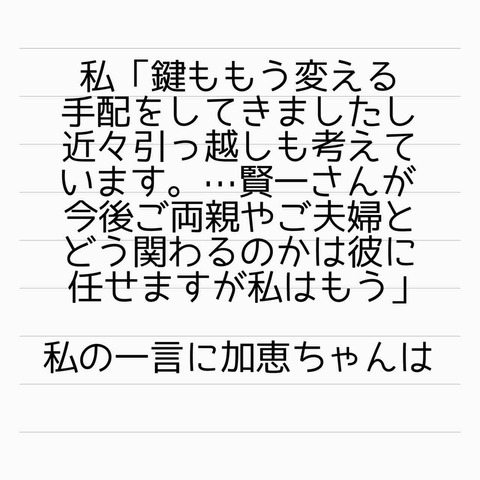 私「鍵ももう変える
手配をしてきましたし
近々引っ越しも考えて
います。…賢一さんが
今後ご両親やご夫婦と
どう関わるのかは彼に
任せますが私はもう」
私の一言に加恵ちゃんは